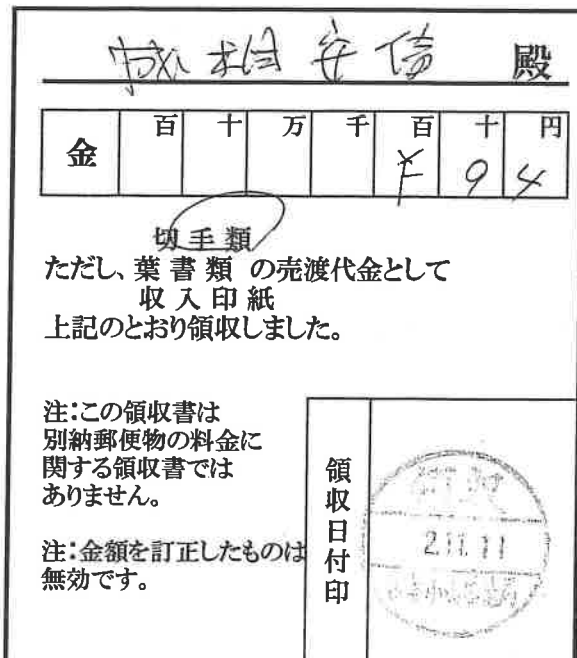 成相安信 殿
金 百 十 万 千 百 十 円
¥ 9 4
切手類
ただし、葉書類 の売渡代金として
収入印紙
上記のとおり領収しました。
注:この領収書は
別納郵便物の料金に
関する領収書では
ありません。
注:金額を訂正したものは
無効です。
領収日付印
2.11.11